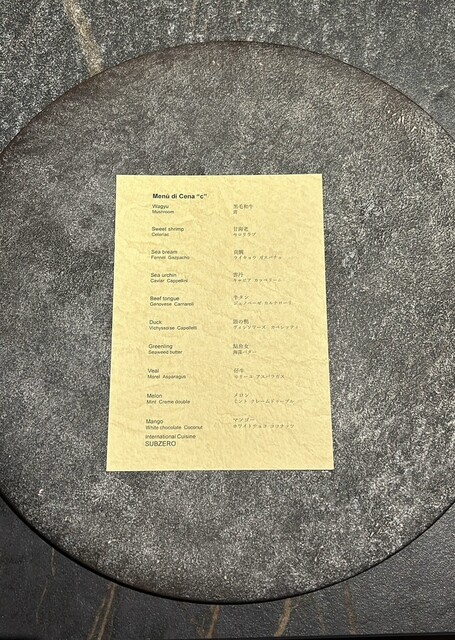 Menù di Cena "c"
Wagyu 黒毛和牛
Mushroom 茸
Sweet shrimp 甘海老
Celeriac セロリラブ
Sea bream 真鯛
Fennel Gazpacho ウイキョウ ガスパチョ
Sea urchin 雲丹
Caviar Cappellini キャビア カッペリーニ
Beef tongue 牛タン
Genovese Carnaroli ジェノベーゼ カルナローリ
Duck
Vichyssoise Cappelletti ヴィシソワーズ カペレッティ
Greenling 鮎魚女
Seaweed butter 海藻バター
Veal 仔牛
Morel Asparagus モリーユ アスパラガス
Melon メロン
Mint Creme double ミント クレームドゥーブル
Mango マンゴー
White chocolate Coconut ホワイトチョコ ココナッツ
International Cuisine
SUBZERO